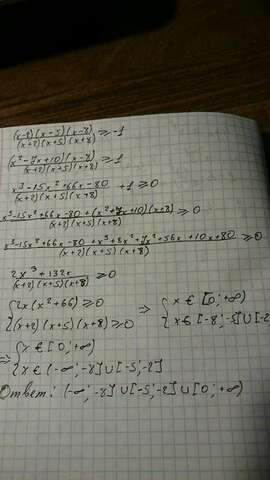 (x-2)(x-5)(x-8)/(x+2)(x+5)(x+8) ≥ -1
(x²-7x+10)(x-8)/(x+2)(x+5)(x+8) ≥ 1
x³-15x²+66x-80/(x+2)(x+5)(x+8) +1 ≥ 0
x³-15x²+66x-80+(x²+7x+10)(x+8)/(x+2)(x+5)(x+8) ≥ 0
x³-15x²+66x-80+x³+8x²+7x²+56x+10x+80/(x+2)(x+5)(x+8) ≥ 0
2x³+132x/(x+2)(x+5)(x+8) ≥ 0
{2x(x²+66) ≥ 0 => {x ∈ [0;+∞)
{(x+2)(x+5)(x+8) ≥ 0 {x ∈ [-8;-5]∪[-2
=> {x ∈ [0;+∞)
{x ∈ (-∞;-8]∪[-5;-2]
Ответ: (-∞;-8]∪[-5;-2]∪[0;+∞)